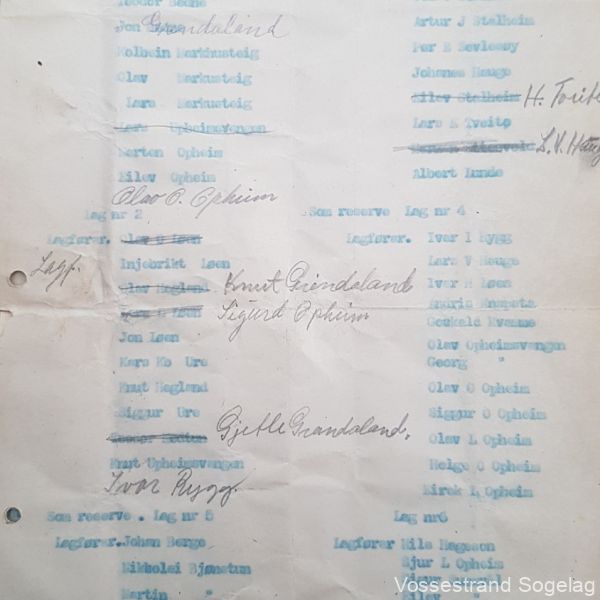 Teodor
Jon Grendaland
Kolbein Markhusteig
Olav Markusteig
Lars Markusteig
Lars Opheimsvangen
Marten Opheim
Eilev Opheim
Olav O. Opheim
Lag nr 2
Lagfører. Olav G Løen
Lagf. Injebrikt Løen
Olav Hegland Knut Grendaland
Løen Sigurd Opheim
Jon Løen
Kars Ure
Knut Hegland
Siggur Ure
Gjetle Grendaland.
Knut Opheimsvangen
Ivar Rygg.
Som reserve . Lag nr 5
Lagfører. Johan Berge
Nikkolai Bjønstun
Martin "
Artur J Stalheim
Per E Sevlesøy
Johanes Hauge
Eilev Stalheim H.
Lars K Tveito
L.V.
Albert Lunde
Som reserve Lag nr 4
Lagfører. Iver I Rygg
Lars V Hauge
Iver M Løen
Andris
Goukald Kvamme
Olav Opheimsvangen
Georg "
Olav O Opheim
Siggur O Opheim
Olav L Opheim
Helge O Opheim
Eirek L Opheim
Lag nr6
Lagfører Nils Hegeson
Sjur L Opheim
Vossestrand Sogelag